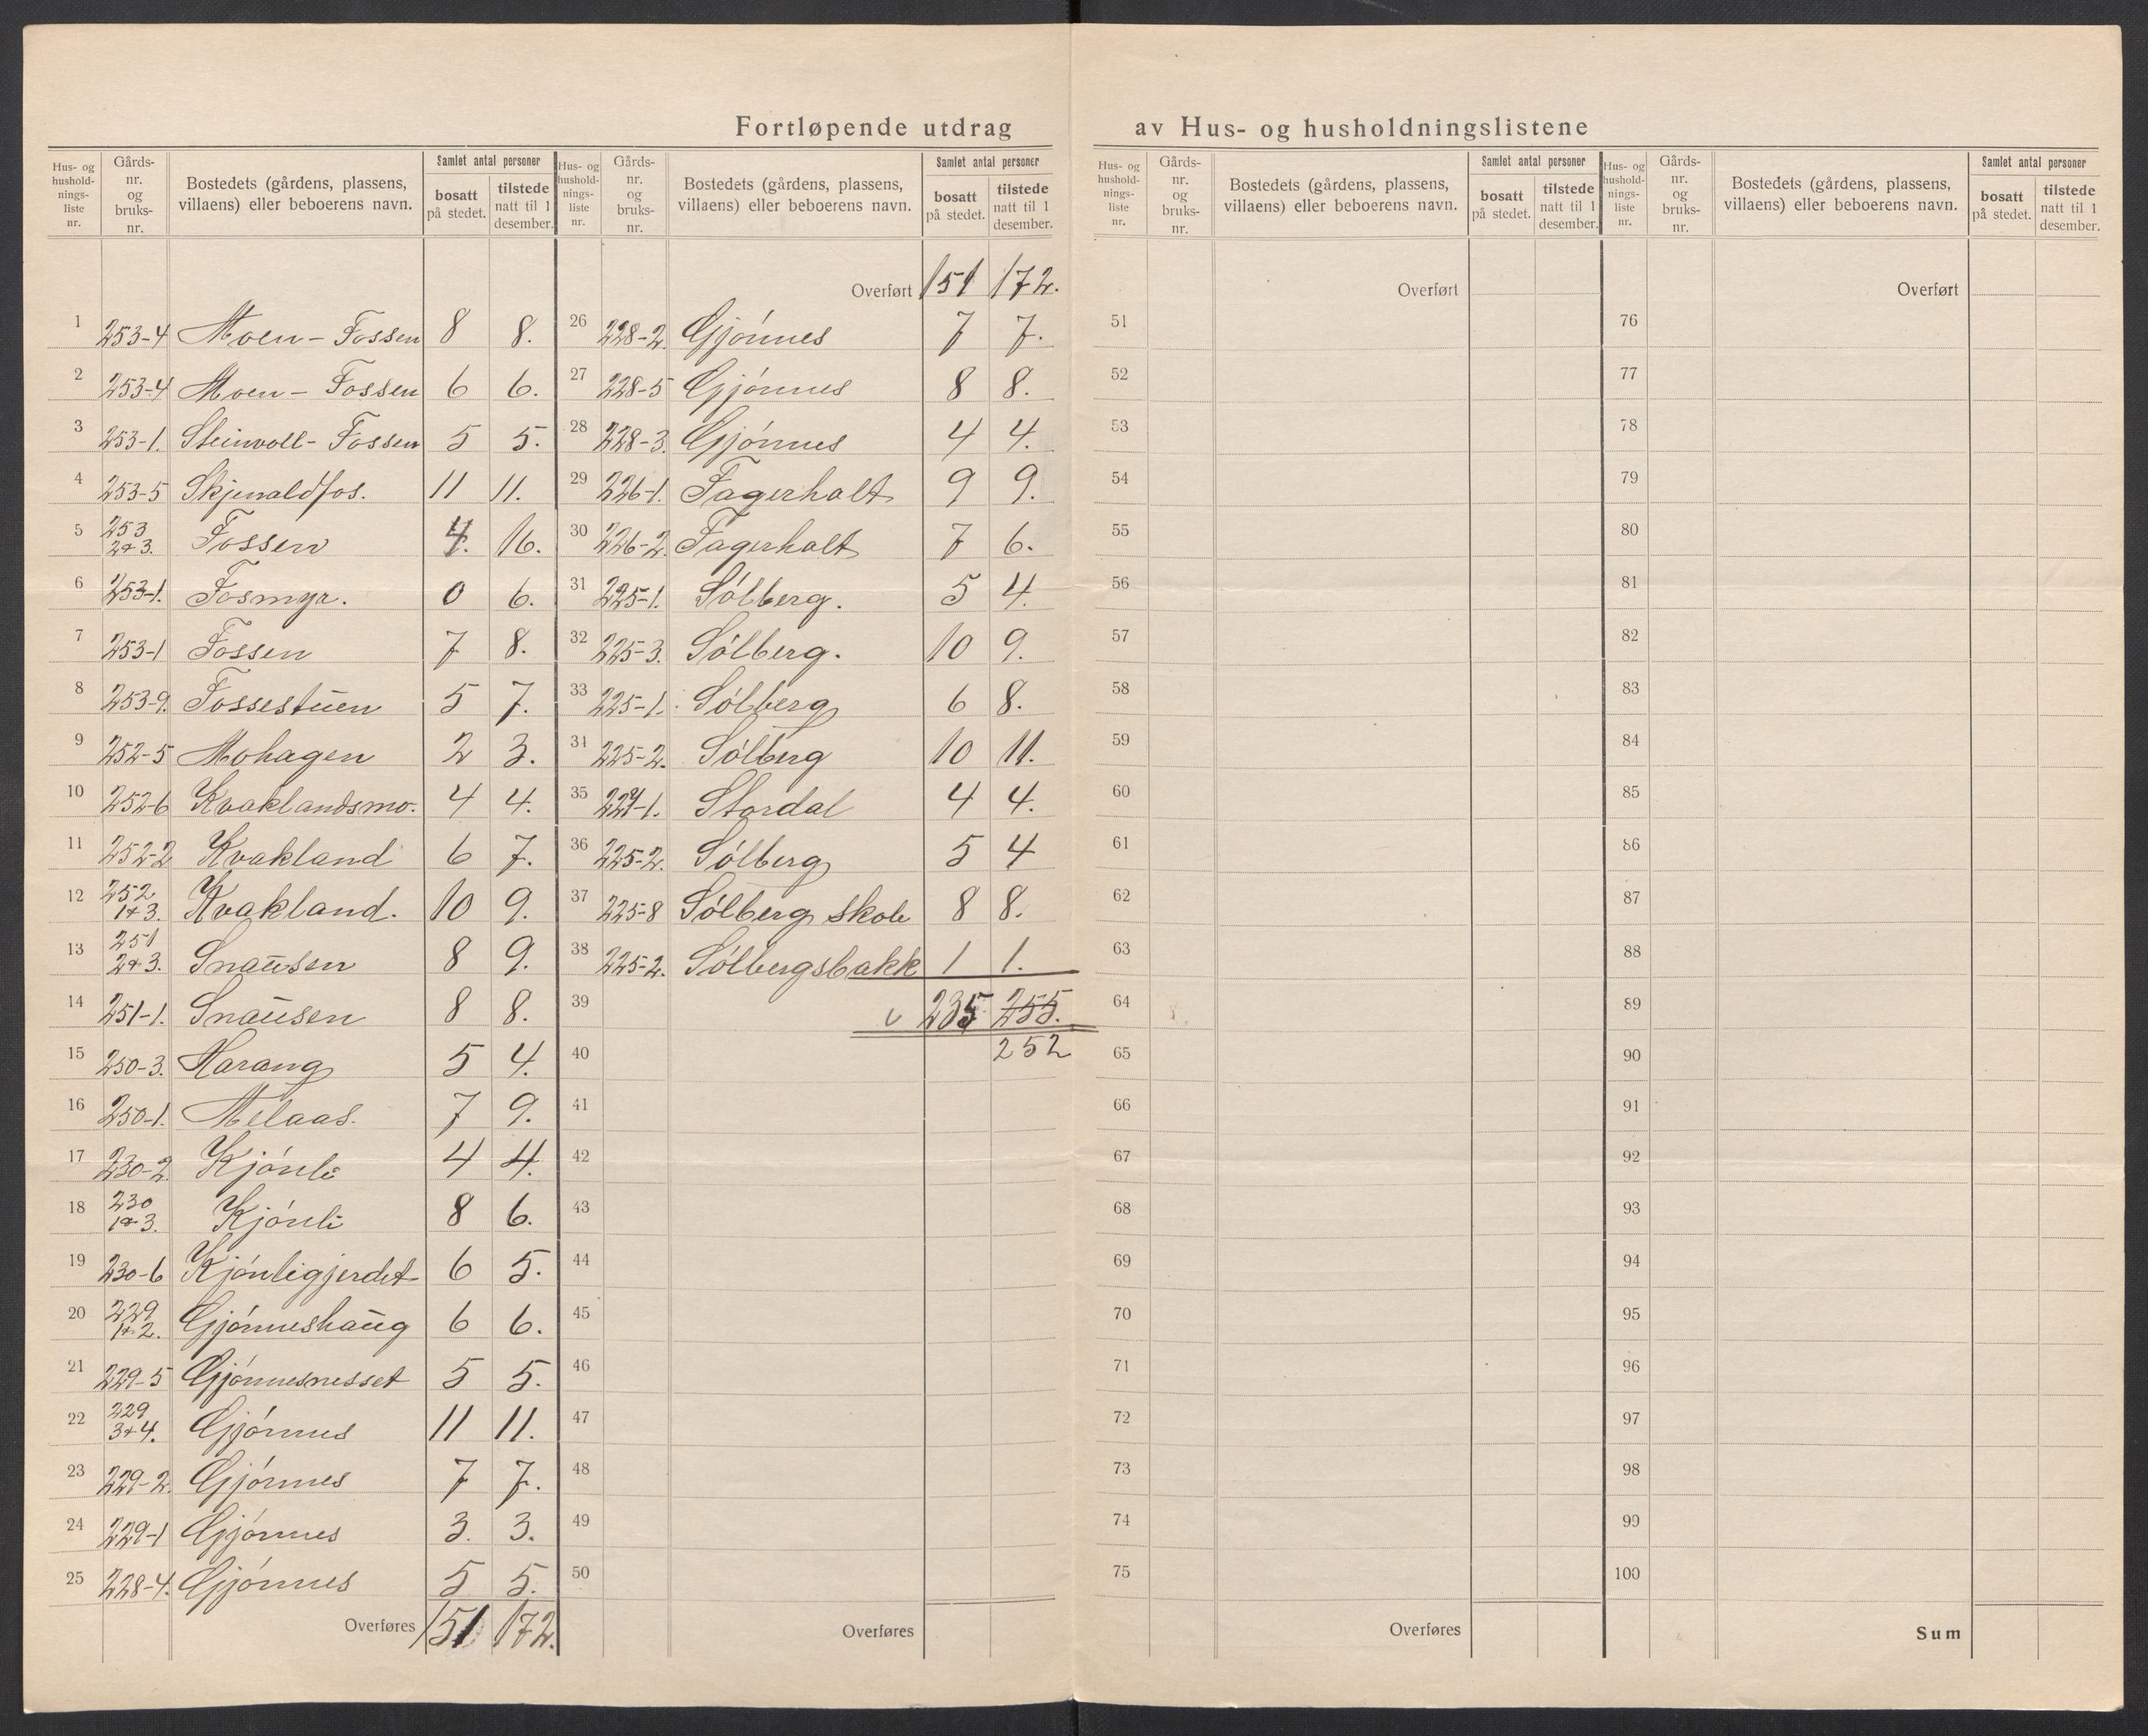 Fortløpende utdrag av Hus- og husholdningslistene
Hus- og husholdnings-liste nr. Gårds-nr. og bruks-nr. Bostedets (gårdens, plassens, villaens) eller beboerens navn. Samlet antal personer bosatt på stedet. tilstede natt til 1 desember.
1 253-4 Moen - Fossen 8 8.
2 253-4 Moen - Fossen 6 6.
3 253-1. Steinvoll - Fossen 5 5.
4 253-5 Skjenaldfos. 11 11.
5 253 2+3. Fossen 4. 16.
6 253-1. Fosmyr. 0 6.
7 253-1 Fossen 7 8.
8 253-9. Fossestuen 5 7.
9 252-5 Mohagen 2 3.
10 252-6 Kvaklandsmo. 4 4.
11 252-2 Kvakland 6 7.
12 252 1+3. Kvakland. 10 9.
13 251 2+3. Snausen 8 9.
14 251-1. Snausen 8 8.
15 250-3. Harang 5 4.
16 250-1. Melaas. 7 9.
17 230-2. Kjónli 4 4.
18 230 1+3. Kjónli 8 6.
19 230-6 Kjónligjerdet 6 5.
20 229 1+2. Gjónneshaug 6 6.
21 229-5 Gjónnesnesset 5 5.
22 229 3+4. Gjónnes 11 11.
23 229-2. Gjónnes 7 7.
24 229-1 Gjónnes 3. 3.
25 228-4. Gjónnes 5 5.
Overføres 151 172.
Hus- og husholdnings-liste nr. Gårds-nr. og bruks-nr. Bostedets (gårdens, plassens, villaens) eller beboerens navn. Samlet antal personer bosatt på stedet. tilstede natt til 1 desember.
Overført 151 172.
26 228-2. Gjónnes 7 7.
27 228-5 Gjónnes 8 8.
28 228-3. Gjónnes 4 4.
29 226-1. Fagerholt 9 9.
30 226-2. Fagerholt 7 6.
31 225-1. Sólberg. 5 4.
32 225-3. Sólberg. 10 9.
33 225-1. Sólberg 6 8.
34 225-2. Sólberg 10 11.
35 224-1. Stordal 4 4.
36 225-2. Sólberg 5 4
37 225-8 Sólberg skole 8 8.
38 225-2. Sólbergsbakk 1 1.
39 v 235 255.
40 252
41
42
43
44
45
46
47
48
49
50
Overføres
Hus- og husholdnings-liste nr. Gårds-nr. og bruks-nr. Bostedets (gårdens, plassens, villaens) eller beboerens navn. Samlet antal personer bosatt på stedet. tilstede natt til 1 desember.
Overført
51
52
53
54
55
56
57
58
59
60
61
62
63
64
65
66
67
68
69
70
71
72
73
74
75
Overføres
Hus- og husholdnings-liste nr. Gårds-nr. og bruks-nr. Bostedets (gårdens, plassens, villaens) eller beboerens navn. Samlet antal personer bosatt på stedet. tilstede natt til 1 desember.
Overført
76
77
78
79
80
81
82
83
84
85
86
87
88
89
90
91
92
93
94
95
96
97
98
99
100
Sum